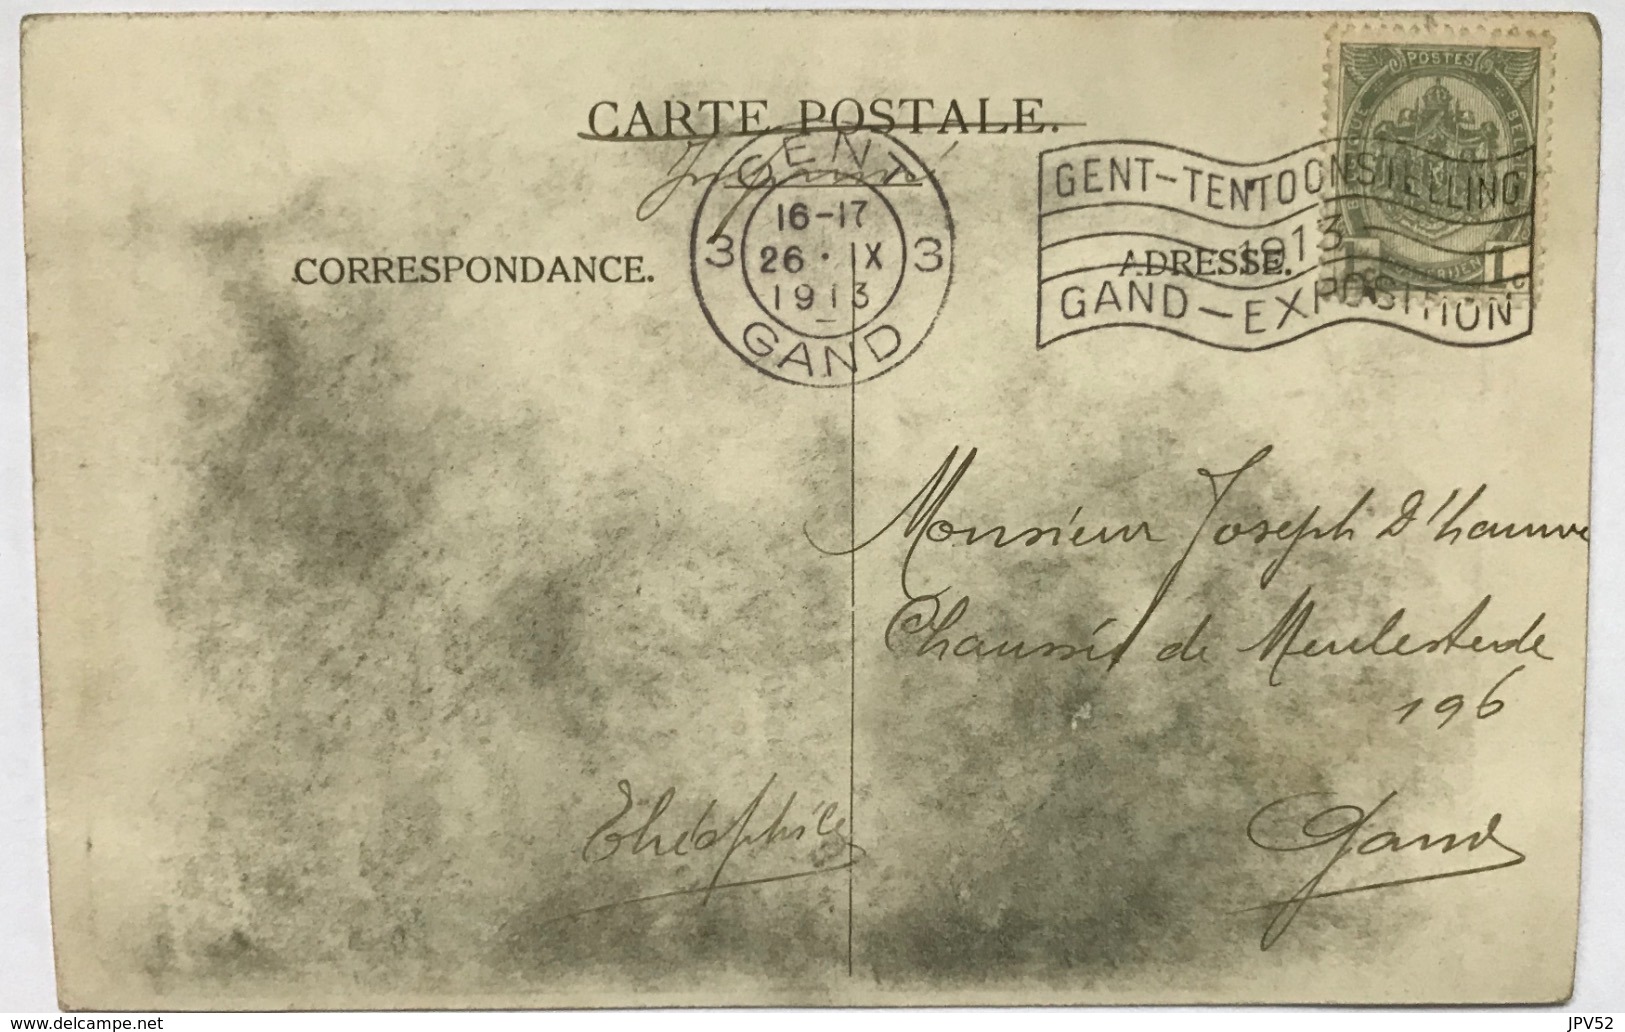 CARTE POSTALE.
Imprimé
GENT
3 16-17 3
26 · IX
1913
GAND
GENT-TENTOONSTELLING
1913
GAND-EXPOSITION
POSTES
1 1c
CORRESPONDANCE.
ADRESSE.
Monsieur Joseph D'hauwe
Chaussée de Meulestede
196
Gand
Théophile
www.delcampe.net
JPV52